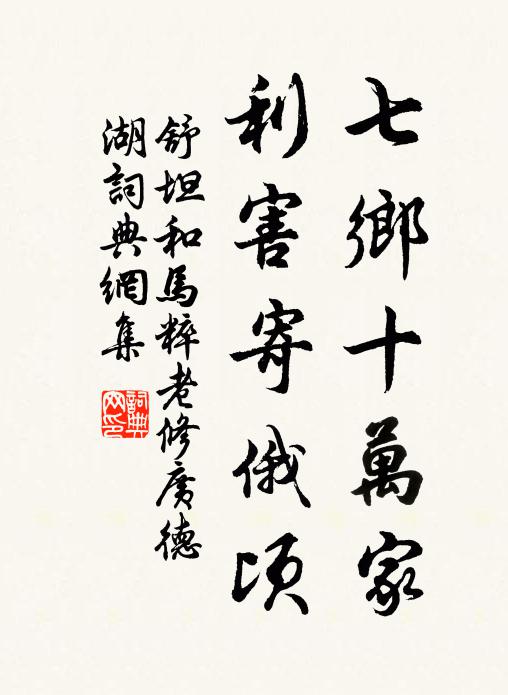 七鄉十萬家
利害寄俄頃
舒坦和馬粹老修廣德
湖詞典網集
詞典网印